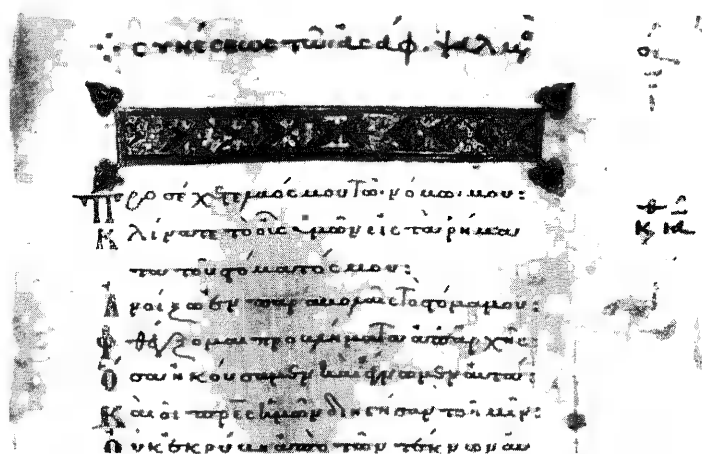 συνέσεως τῶ ἀσάφ. ψαλμὸ
Προσέχετε λαός μου τῶ νόμω μου:
Κλίνατε τὸ οὖς ὑμῶν εἰς τὰ ρήμα
τα τοῦ στόματός μου:
Ἀνοίξω ἐν παραβολαῖς τὸ στόμα μου:
Φθέγξομαι προβλήματα ἀπαρχῆς:
Ὅσα ἠκούσαμεν καὶ ἔγνωμεν αὐτά:
Καὶ οἱ πρες ἡμῶν διηγήσαντο ἡμῖν:
Οὐκ ἐκρύβη ἀπὸ τῶν τέκνων αὐ